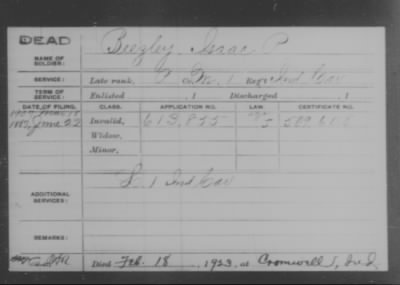 DEAD
NAME OF SOLDIER: Beezley, Isaac P
SERVICE: Late rank, Co. 1 Reg't Ind Cav
TERM OF SERVICE: Enlisted , 1 Discharged , 1
DATE OF FILING. CLASS. APPLICATION NO. LAW. CERTIFICATE NO.
1887, June 22 Invalid, 613,855
Widow,
Minor,
ADDITIONAL SERVICES: 1 Ind Cav
REMARKS:
Died Feb. 18, 1923, at Cromwell, Ind.